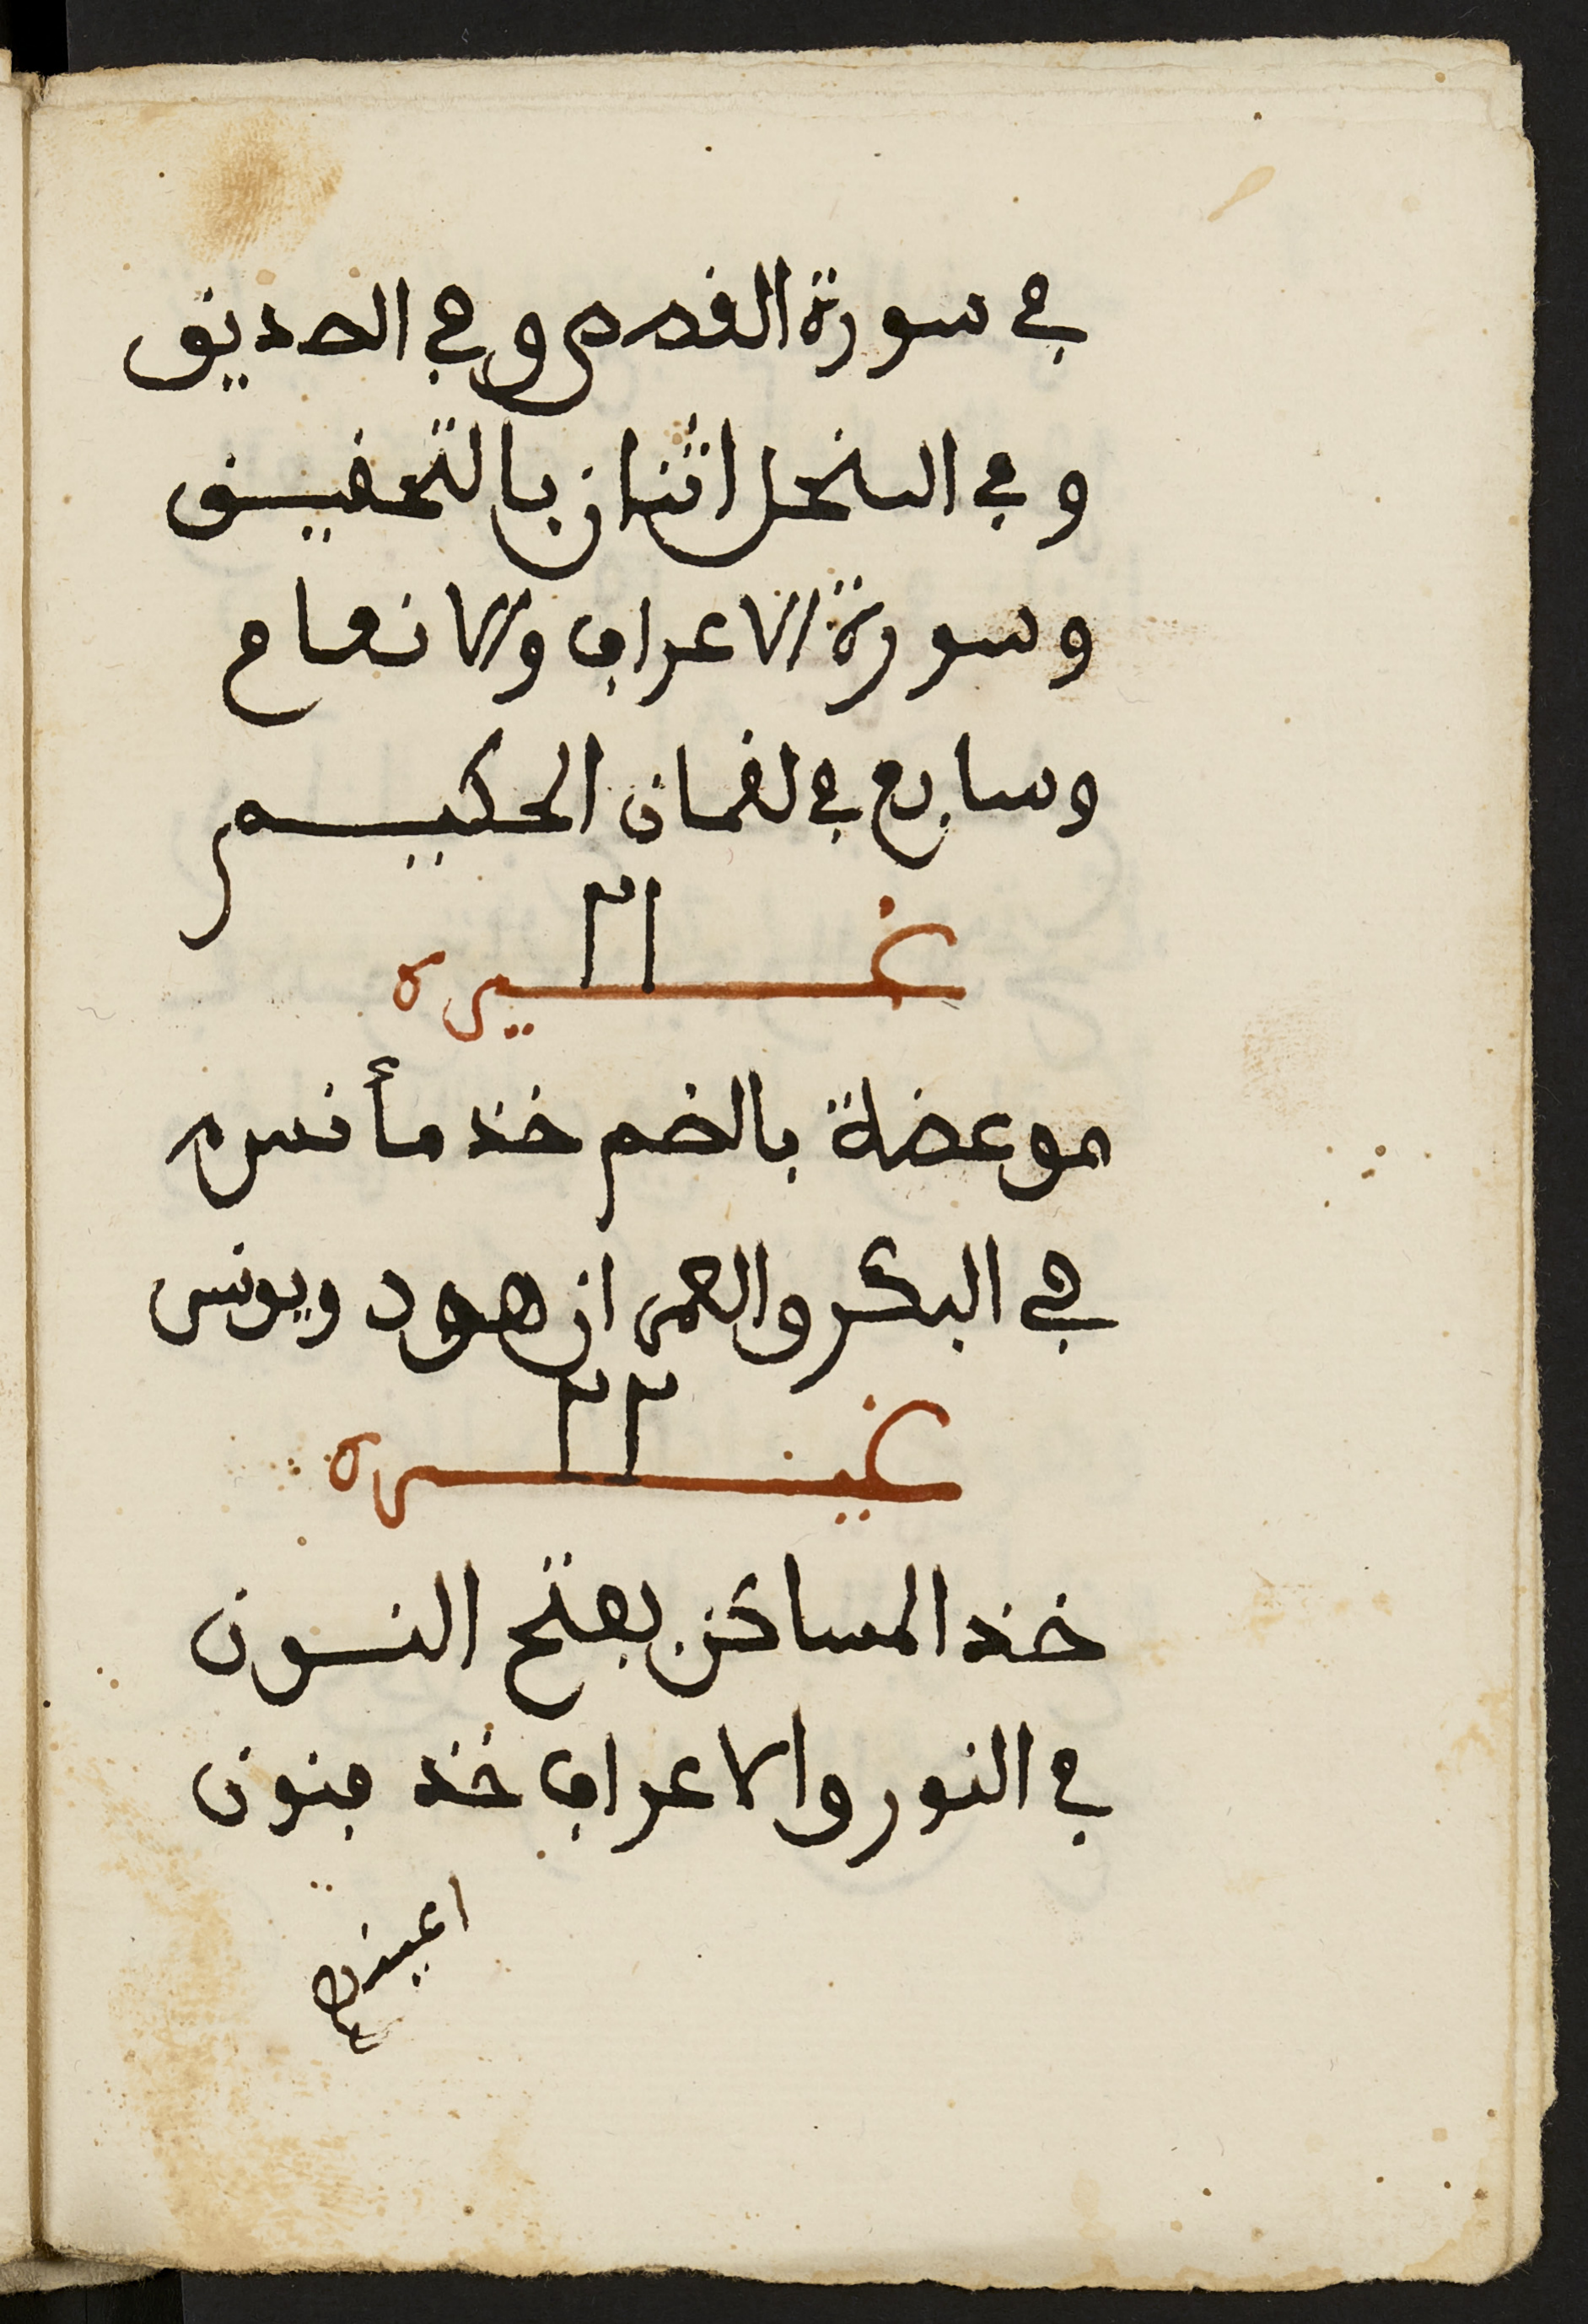 في سورة القصص وفي الصديق
وفي النحل اثنان بالتحقيق
وسورة الاعراف والانعام
وسابع في لقمان الحكيم
٢١
غيره
موعضة بالضم خذ مأنس
في البكر والعمران هود ويونس
٢٢
غيره
خذ المساكن بفتح النون
في النور والاعراف خذ فنون
اعينن